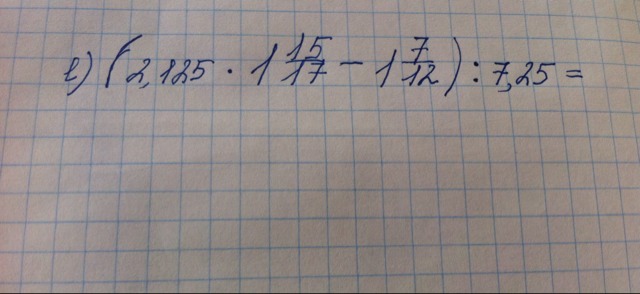 е) (2,125 · 1 15/17 − 1 7/12) : 7,25 =